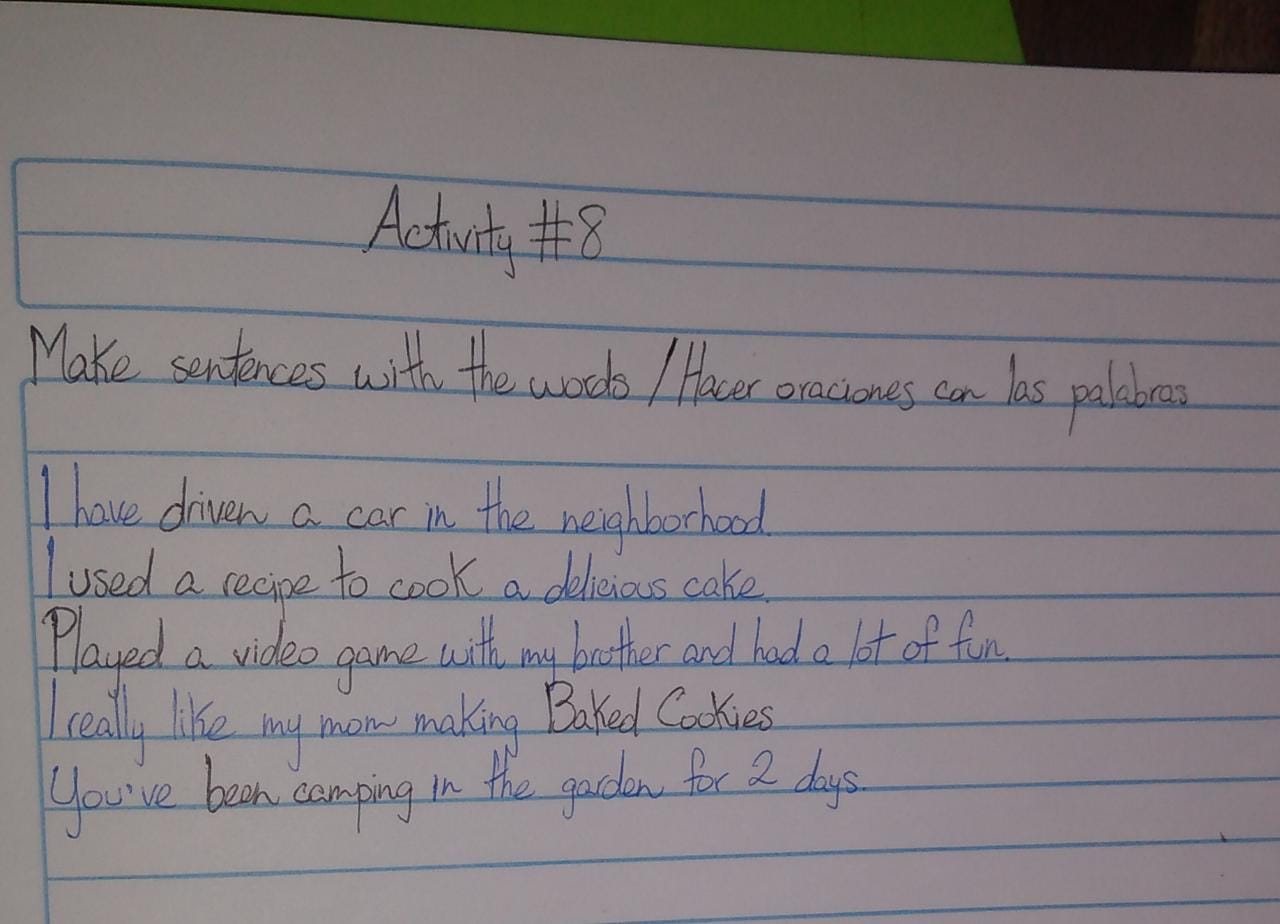 Activity #8
Make sentences with the words / Hacer oraciones con las palabras
I have driven a car in the neighborhood.
I used a recipe to cook a delicious cake.
Played a video game with my brother and had a lot of fun.
I really like my mom making Baked Cookies
You've been camping in the garden for 2 days.